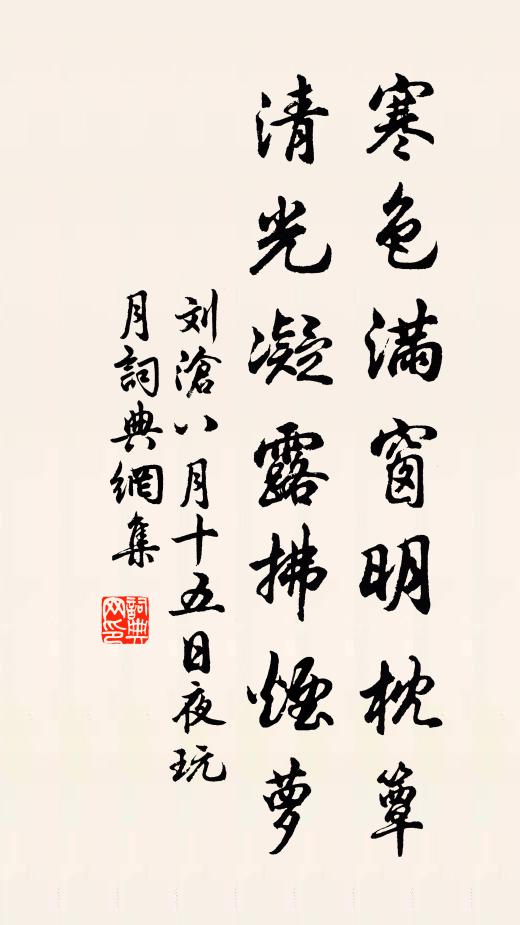 寒色滿窗明枕簟
清光凝露拂煙蘿
刘滄八月十五日夜玩
月詞典網集
詞典网印